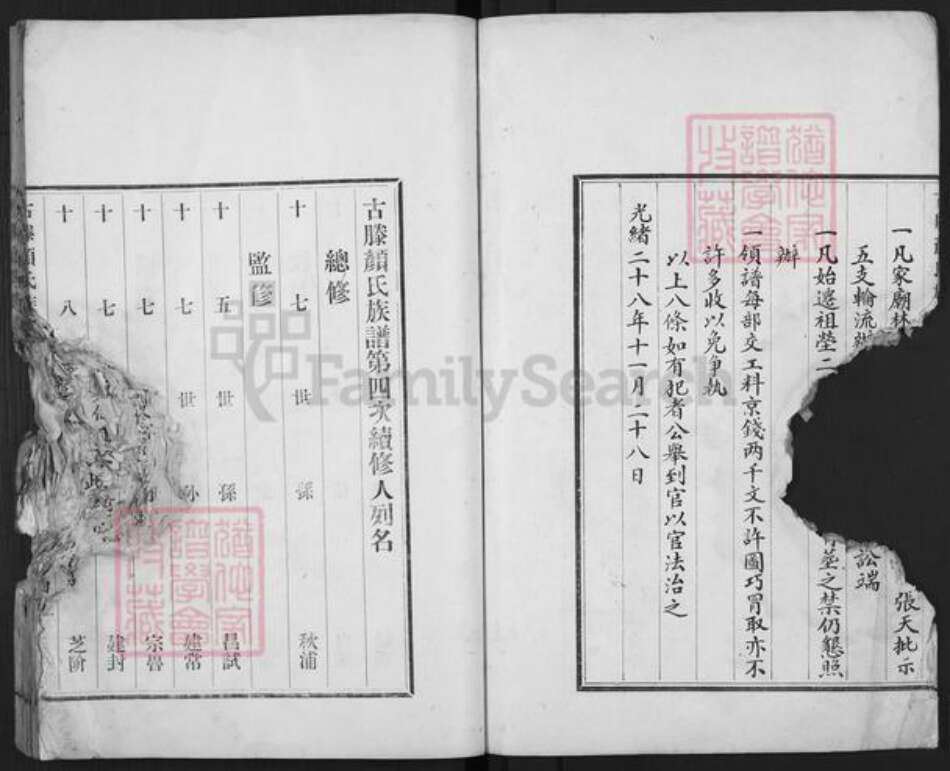 一凡家廟林
張天批示
五支輪流辦
訟端
一凡始遷祖塋二
蒸之禁仍懇照
辦
一領譜每部交工料京錢两千文不許圖巧冒取亦不
許多收以免争執
以上八條如有犯者公舉到官以官法治之
光緒二十八年十一月二十八日
古滕顏氏族譜第四次續修人列名
總修
十七世孫 秋浦
監修
十五世孫 昌試
十七世孙 建常
十七 宗魯
十七 建封
十八 芝階
古滕顏氏族
FamilySearch
譜學會
收藏
譜學會
收藏